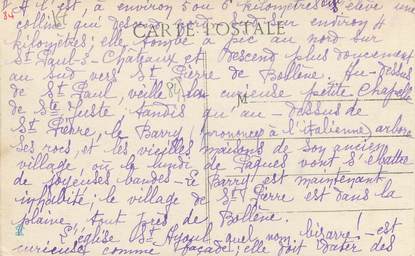 A l'est, à environ 5 ou 6 kilomètres s'élève une
colline qui descend nord sud sur environ 4
kilomètres ; elle tombe à pic au nord sur
CARTE POSTALE
St Paul-3-Châteaux et descend plus doucement
au sud vers St Pierre de Bollène. Au-dessus
de St Paul, veille sa curieuse petite Chapelle
de Ste Juste ; tandis qu'au-dessus de
St Pierre, le Barry, (prononcez à l'italienne) arbore
ses rocs, et les vieilles maisons de son ancien
village, où le lundi de Pâques vont s'ébattre
de joyeuses bandes - Le Barry est maintenant
inhabité ; le village de St Pierre est dans la
plaine, tout près de Bollène.
L'église St Ayoul, quel nom bizarre ! est
curieuse comme façade ; elle doit dater des